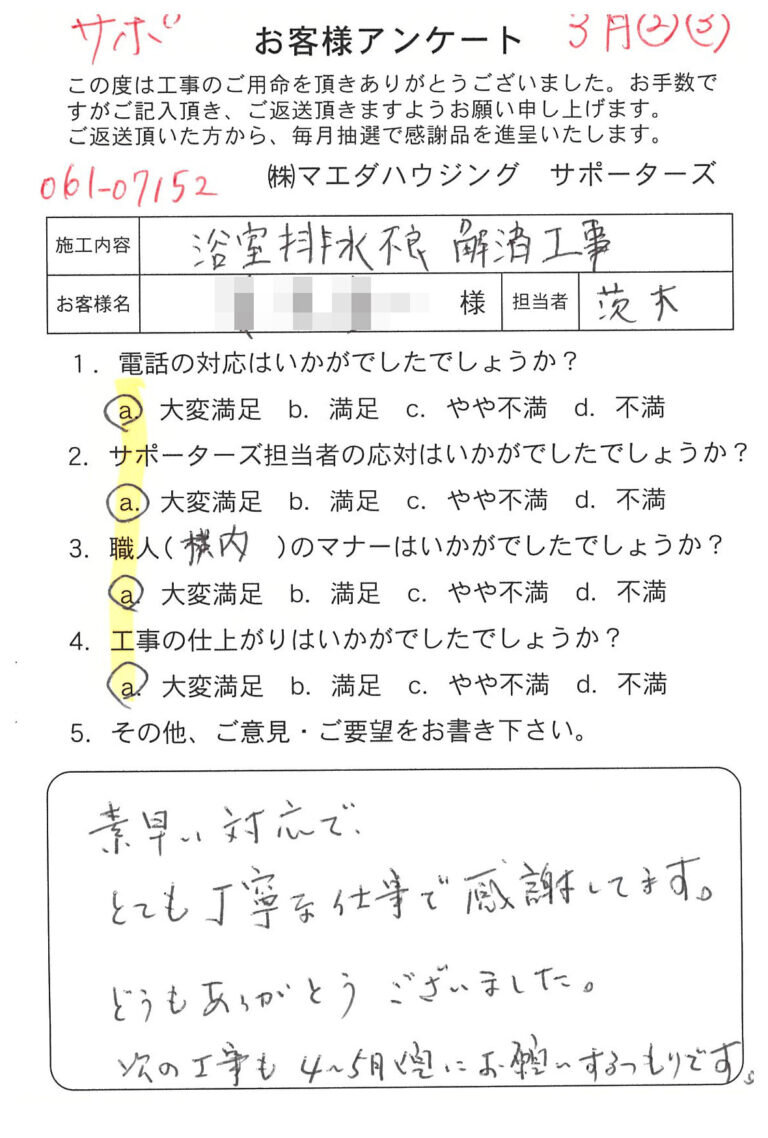 サポ お客様アンケート 3月②③
この度は工事のご用命を頂きありがとうございました。お手数で
すがご記入頂き、ご返送頂きますようお願い申し上げます。
ご返送頂いた方から、毎月抽選で感謝品を進呈いたします。
061-07152 ㈱マエダハウジング サポーターズ
施工内容 浴室排水不良 解消工事
お客様名 様 担当者 茨木
1. 電話の対応はいかがでしたでしょうか?
a. 大変満足 b. 満足 c. やや不満 d. 不満
2. サポーターズ担当者の応対はいかがでしたでしょうか?
a. 大変満足 b. 満足 c. やや不満 d. 不満
3. 職人( 内 )のマナーはいかがでしたでしょうか?
a. 大変満足 b. 満足 c. やや不満 d. 不満
4. 工事の仕上がりはいかがでしたでしょうか?
a. 大変満足 b. 満足 c. やや不満 d. 不満
5. その他、ご意見・ご要望をお書き下さい。
素早い対応で、
とても丁寧な仕事で感謝してます。
どうもありがとうございました。
次の工事も4~5月頃にお願いするつもりです。